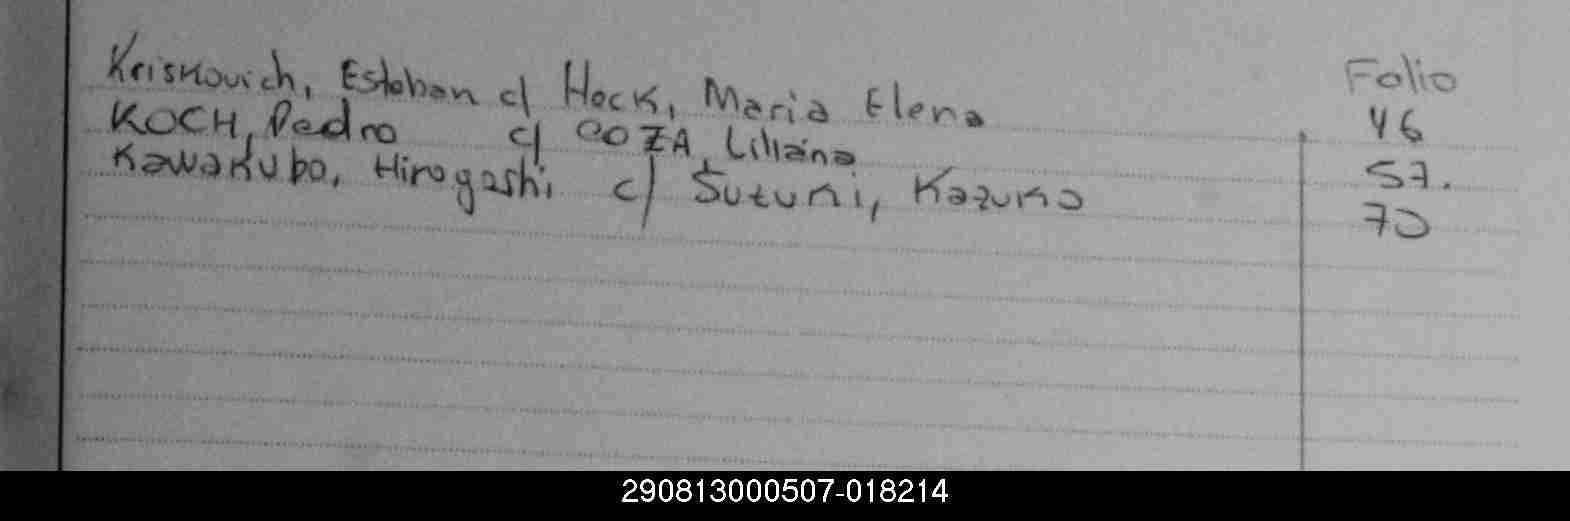 Kriskovich, Esteban c/ Hock, Maria Elena Folio 46
KOCH, Pedro c/ OOZA, Liliana 57.
Kawakubo, Hirogashi c/ Suzuki, Kazuko 70
290813000507-018214